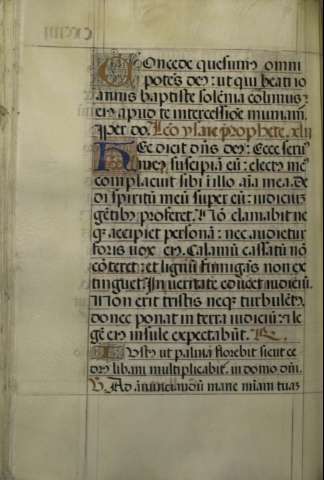 Concede quesum9 omni
potēs deus: ut qui beati io
annis baptiste solēnia colimus:
eius apud te intercessiōe muniam᷑.
Per do. Lc̄o ysaie prophete. xlii
Hec dicit dn̄s deus: Ecce seru9
meus suscipiā eū: electus meus
complacuit sibi in illo aīa mea. de
di spiritū meū super eū: iudiciū
gētibus proferet. Nō clamabit ne
q3 accipiet personā: nec audietur
foris uox eius. Calamū cassatū nō
cōteret: et lignū fumigās non ex
tinguet. In veritate educet iudiciū.
Non erit tristis neq3 turbulēt9,
donec ponat in terra iudiciū: et le
gē eius insule expectabūt. R.
Iustus ut palma florebit sicut ce
drus libani multiplicabit᷑. in domo dn̄i.
V. Ad annunciandū mane miam tuā